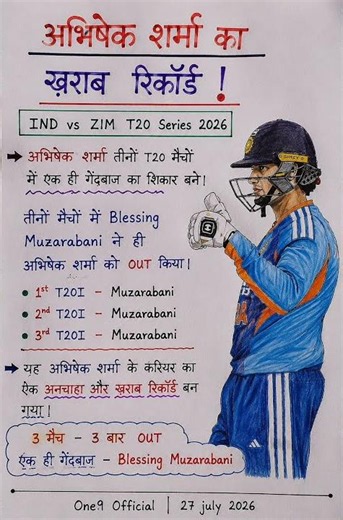 अभिषेक शर्मा का
ख़राब रिकॉर्ड !
IND vs ZIM T20 Series 2026
→ अभिषेक शर्मा तीनों T20 मैचों
में एक ही गेंदबाज का शिकार बने।
तीनों मैचों में Blessing
Muzarabani ने ही
अभिषेक शर्मा को OUT किया।
• 1st T20I – Muzarabani
• 2nd T20I – Muzarabani
• 3rd T20I – Muzarabani
→ यह अभिषेक शर्मा के करियर का
ऐक अनचाहा और खराब रिकॉर्ड बन
गया।
3 मैच – 3 बार OUT
एक ही गेंदबाज़ – Blessing Muzarabani
One9 Official | 27 july 2026